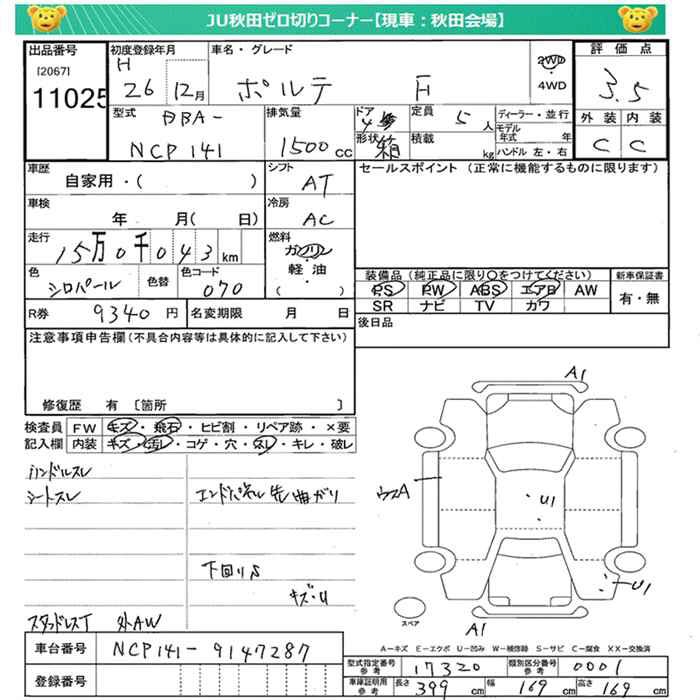 JU秋田ゼロ切りコーナー【現車：秋田会場】
出品番号
[2067]
11025
初度登録年月
H
26 12月
車名・グレード
ポルテ F
2WD
・
4WD
評価点
3.5
型式
DBA-
NCP141
排気量
1500cc
ドア
4
形状
箱
定員
5人
積載
kg
ディーラー・並行
モデル年式 年
ハンドル 左・右
外装 内装
C C
車歴
自家用・( )
シフト
AT
セールスポイント (正常に機能するものに限ります)
車検
年 月( 日)
冷房
AC
走行
15万0千043km
燃料
ガソリン
軽・油
( )
色
シロパール
色替
色コード
070
装備品 (純正品に限り○をつけてください)
PS PW ABS エアB AW
SR ナビ TV カワ
新車保証書
有・無
R券 9340円
名変期限 月 日
後日品
注意事項申告欄(不具合内容等は具体的に記入して下さい)
修復歴 有 〔箇所 〕
検査員記入欄
FW キズ・飛石・ヒビ割・リペア跡・×要
内装 キズ・汚レ・コゲ・穴・スレ・キレ・破レ
ハンドルスレ
シートスレ
エンドパネル先曲ガリ
下回りS
キズ・U
スタッドレスT 外AW
A1
ウスA
U1
U1
A1
スペア
A－キズ E－エクボ U－凹み W－補修跡 S－サビ C－腐食 XX－交換済
車台番号
NCP141-9147287
登録番号
型式指定番号 参考
17320
類別区分番号 参考
0001
車庫証明用 参考
長さ 399cm
幅 169cm
高さ 169cm